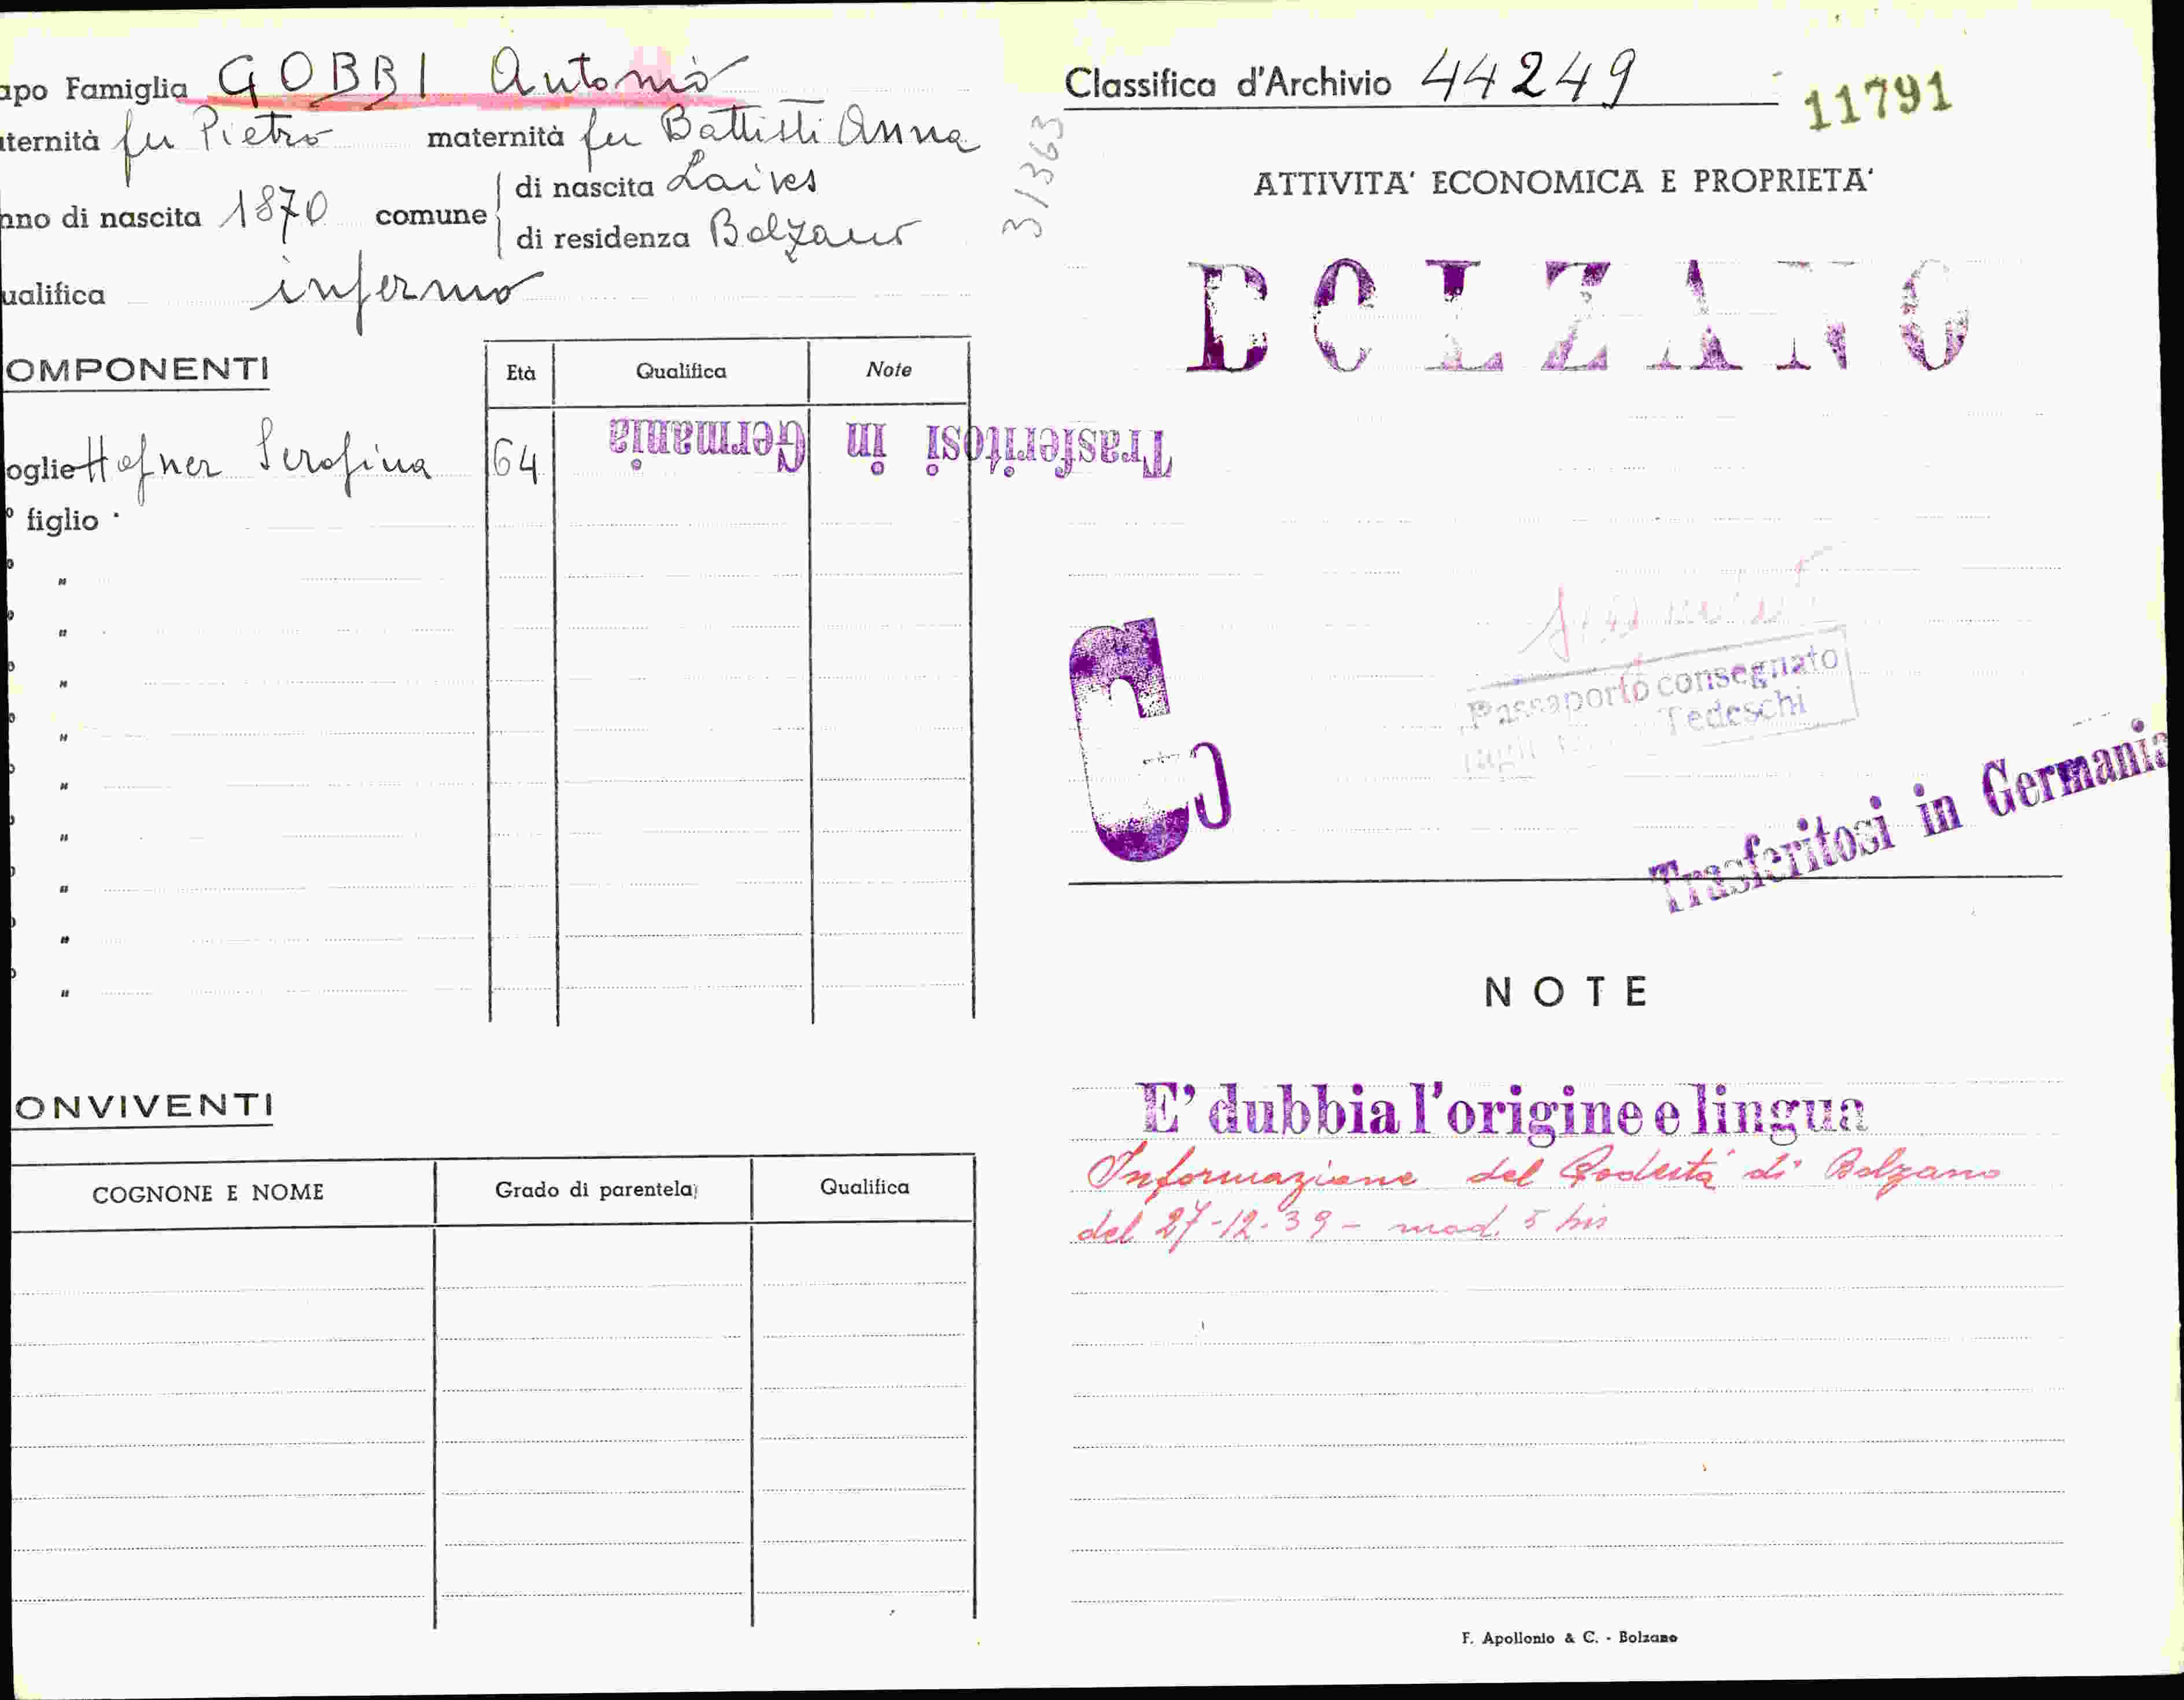 apo Famiglia GOBBI Antonio
aternità fu Pietro maternità fu Battisti Anna
nno di nascita 1870 comune di nascita Laives
di residenza Bolzano
ualifica infermo
OMPONENTI
Età Qualifica Note
oglie Hofner Serafina 64
Trasferitosi in Germania
o figlio
"
"
"
"
"
"
"
"
"
ONVIVENTI
COGNONE E NOME Grado di parentela Qualifica
31363
Classifica d'Archivio 44249
11791
ATTIVITA' ECONOMICA E PROPRIETA'
BOLZANO
Passaporto consegnato
Tedeschi
G
Trasferitosi in Germania
NOTE
E' dubbia l'origine e lingua
Informazione del Podestà di Bolzano
del 27-12-39 - mod. 5 bis
F. Apollonio & C. - Bolzano